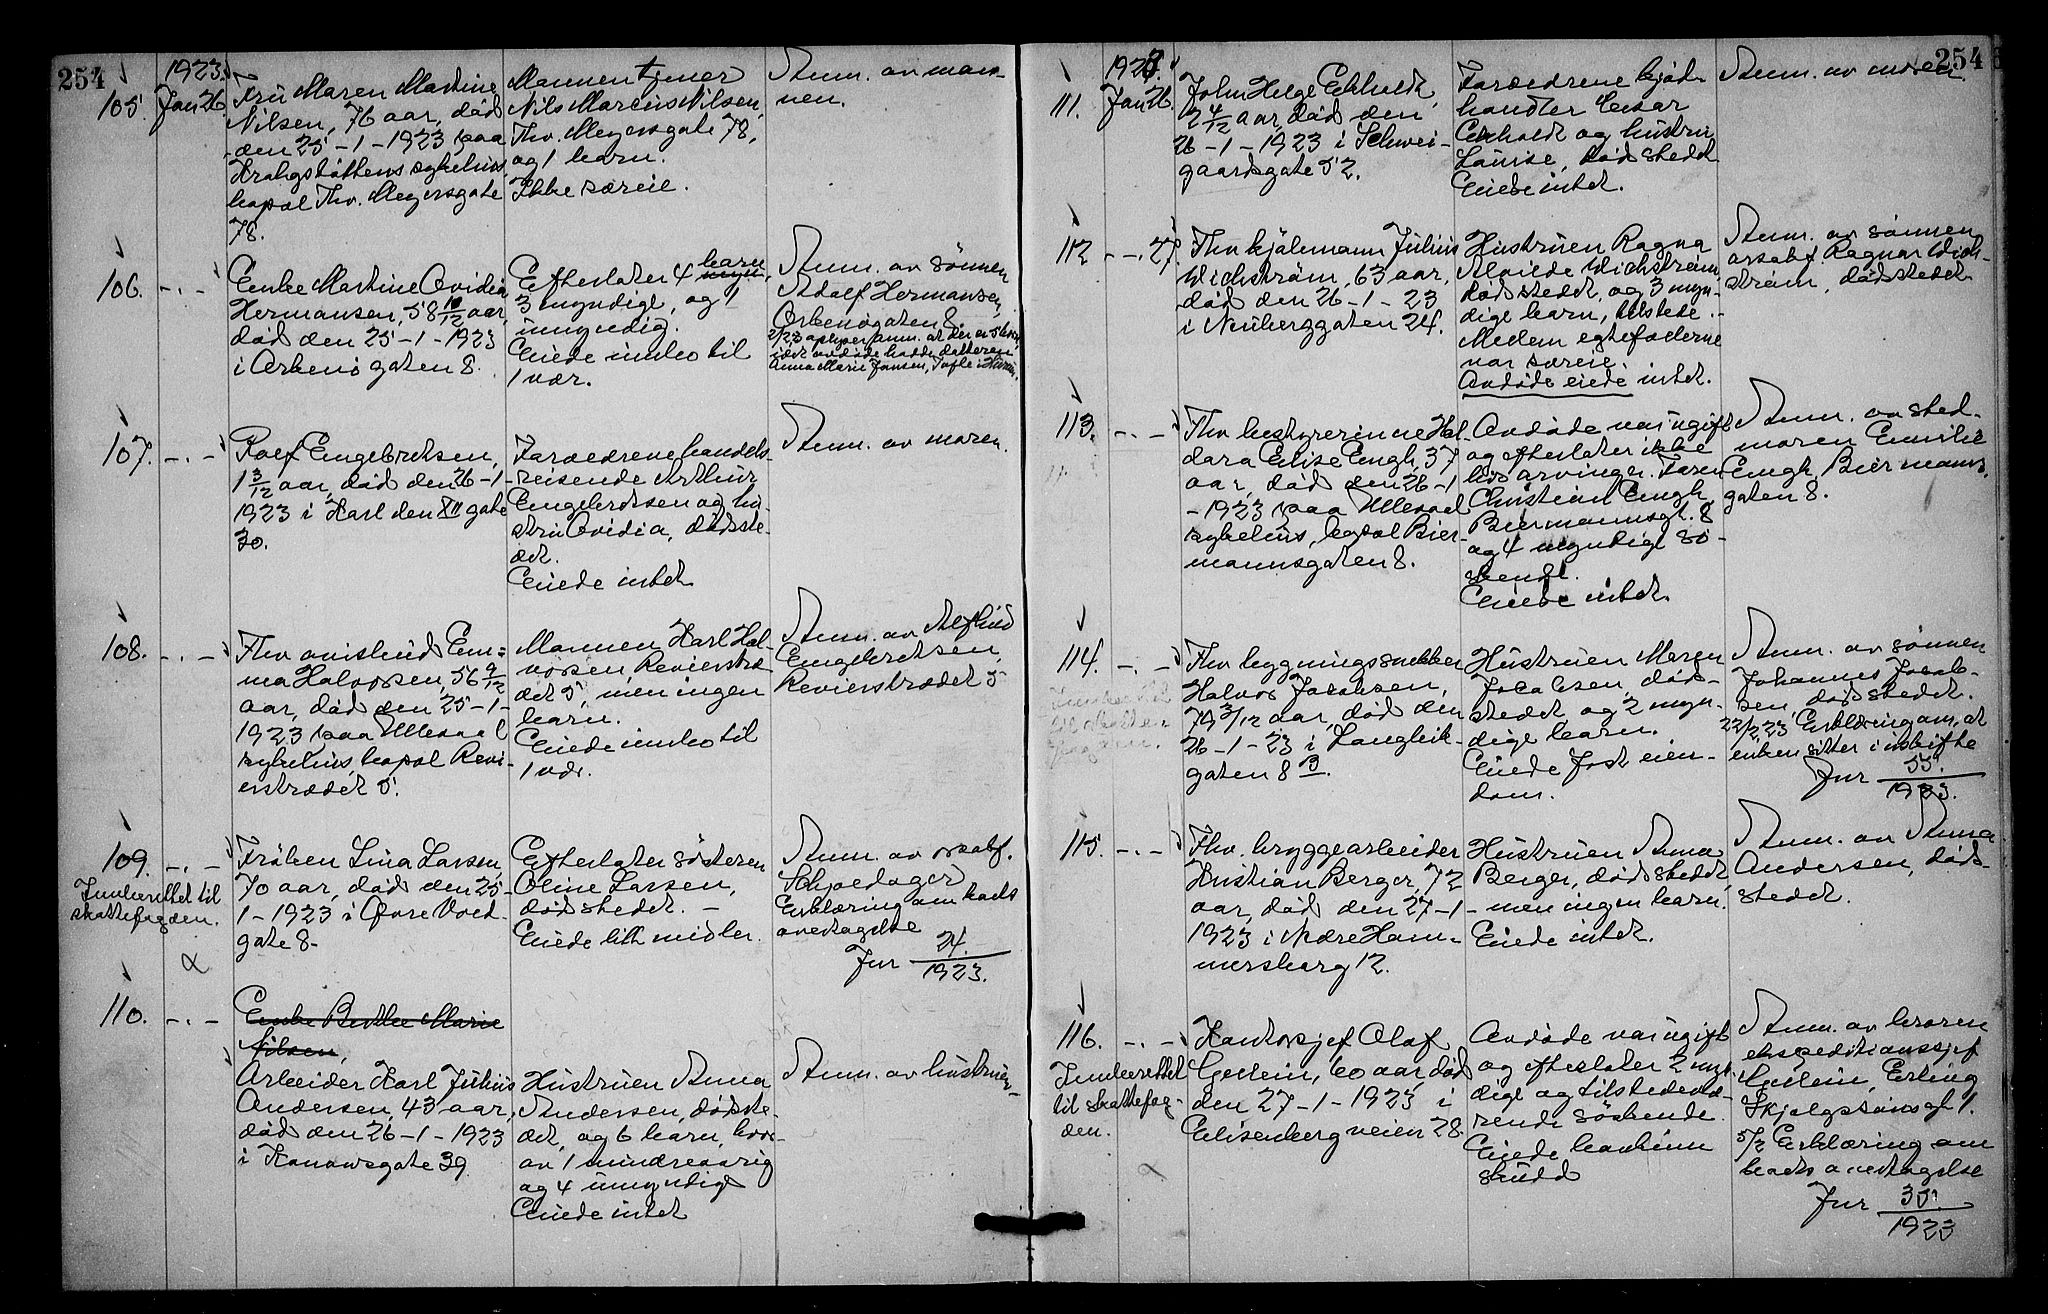 254
1923.
105.
Jan 26.
Fru Maren Martine
Nilsen, 76 aar, död
den 25-1-1923 paa
sykehus,
bopæl Thv. Meyersgate
78.
Manden tjener
Nils Marius Nilsen,
Thv. Meyersgate 78,
og 1 barn.
Ikke særeie.
Anm. av man-
nen.
106. -"-
Enke Martine Ovidia
Hermansen, 58 10/12 aar,
död den 25-1-1923
i Orkenögaten 8.
Efterlater 4 barn
3 myndige, og 1
umyndig.
Eiede innbo til
1 vær.
Anm. av sönnen
Adolf Hermansen,
Orkenögaten 8
Anna Marie Jansen,
107. -"-
Rolf Engebretsen,
1 3/12 aar, död den 26-1-
1923 i Karl den XII gate
30.
Foræedrene handels-
reisende Arthur
Engebretsen og hu-
stru Ovidia, dödste-
det.
Eiede intet
Anm. av moren.
108. -"-
Fhv. avisbud Em-
ma Halvorsen, 56 9/12
aar, död den 25-1-
1923 paa Ullevaal
sykehus, bopæl Revi-
erstrædet 5.
Mannen Karl Hal-
vorsen, Revierstræ-
det 5, men ingen
barn.
Eiede innbo til
1 vær.
Anm. av Alfhild
Engebretsen,
Revierstrædet 5
109. -"-
Innberettet til
skattefogden.
Fröken Lina Larsen,
70 aar, död den 25-
1-1923 i Övre Vold-
gate 8-
Efterlater sösteren
Oline Larsen,
dödstedet. -
Eiede litt midler.
Anm. av
Erklæring om boets
overtagelse
Jnr 24.
1923.
110. -"-
Enke Berthe Marie
Nilsen,
Arbeider Karl Julius
Andersen, 43 aar,
död den 26-1-1923
i Kanonsgate 39
Hustruen Anna
Andersen, dödste-
det, og 6 barn, hvor-
av 1 mindreaarig
og 4 umyndige
Eiede intet
Anm. av hustruen-
254
192
111.
Jan 26.
John Helge Ekholdt,
2 4/12 aar, död den
26-1-1923 i Schwei-
gaardsgate 52.
Foræedrene kjöt-
handler Einar
Ekholdt og hustru
Louise, dödstedet
Eiede intet.
Anm. av moren
112 -"- 27.
Fhv kjælemann Julius
Wichström, 63 aar,
död den 26-1-23
i Neuberggaten 24.
Hustruen Ragna
Alvilde Wichström,
dödstedet, og 3 myn-
dige barn, tilstede.-
Mellem egtefællerne
var særeie.
Avdöde eiede intet.
Anm. av sönnen
Ragnar Wich-
ström, dödstedet
113. -"-
Fhv bestyrerinne Hal-
dara Elise Engh, 37
aar, död den 26-1
-1923 paa Ullevaal
sykehus, bopæl Bier-
mannsgaten 8.
Avdöde var ugift
og efterlater ikke
livsarvinger. Faren
Christian Engh,
Biermannsgt. 8
og 4 myndige sö-
skende.
Eiede intet.
Anm. av sted-
moren Emilie
Engh, Biermanns-
gaten 8.
114. -"-
Fhv bygningssnekker
Halvor Jacobsen,
79 3/12 aar, död den
26-1-23 i Langleik-
gaten 8 B.
Hustruen Maren
Jacobsen, död-
stedet, og 2 myn-
dige barn.
Eiede fast eien-
dom.
Anm. av sönnen
Johannes Jacob-
sen, dödstedet.
22/2 23, Erklæring om, at
enken sitter i uskifte
Jnr 55.
1923.
115. -"-
Fhv. bryggearbeider
Kristian Berger, 72
aar, död den 27-1-
1923 i Nedre Ham-
mersborg 12.
Hustruen Anna
Berger, dödstedet,
men ingen barn.
Eiede intet.
Anm. av Anna
Andersen, död-
stedet.
116. -"-
Innberettet
til skattefog-
den.
Kontorsjef Olaf
60 aar, död
den 27-1-1923 i
Elisenbergveien 28.
Avdöde var ugift
og efterlater 2 myn-
dige og tilstedevæ-
rende söskende
Eiede bankinn-
skudd
Anm. av broren
ekspeditionssjef
Erling
Skjalgssönsgt 1.
5/2 Erklæring om
boets overtagelse
Jnr 35.
1923